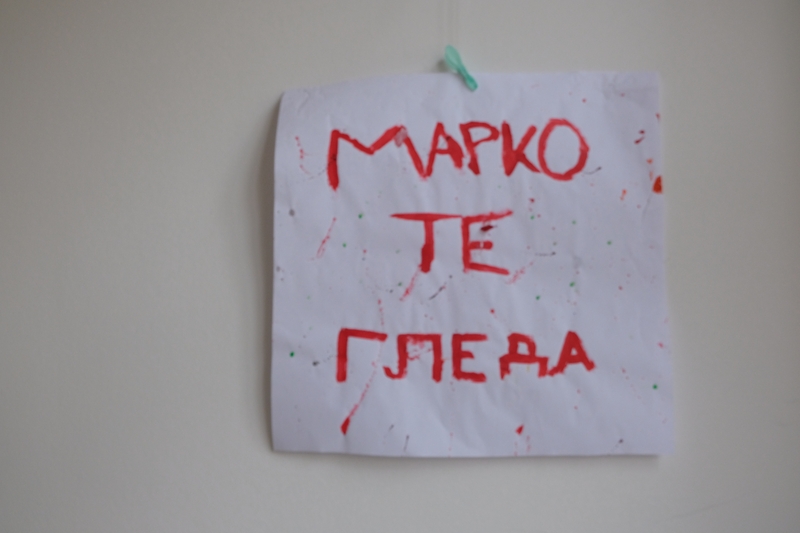 МАРКО
ТЕ
ГЛЕДА